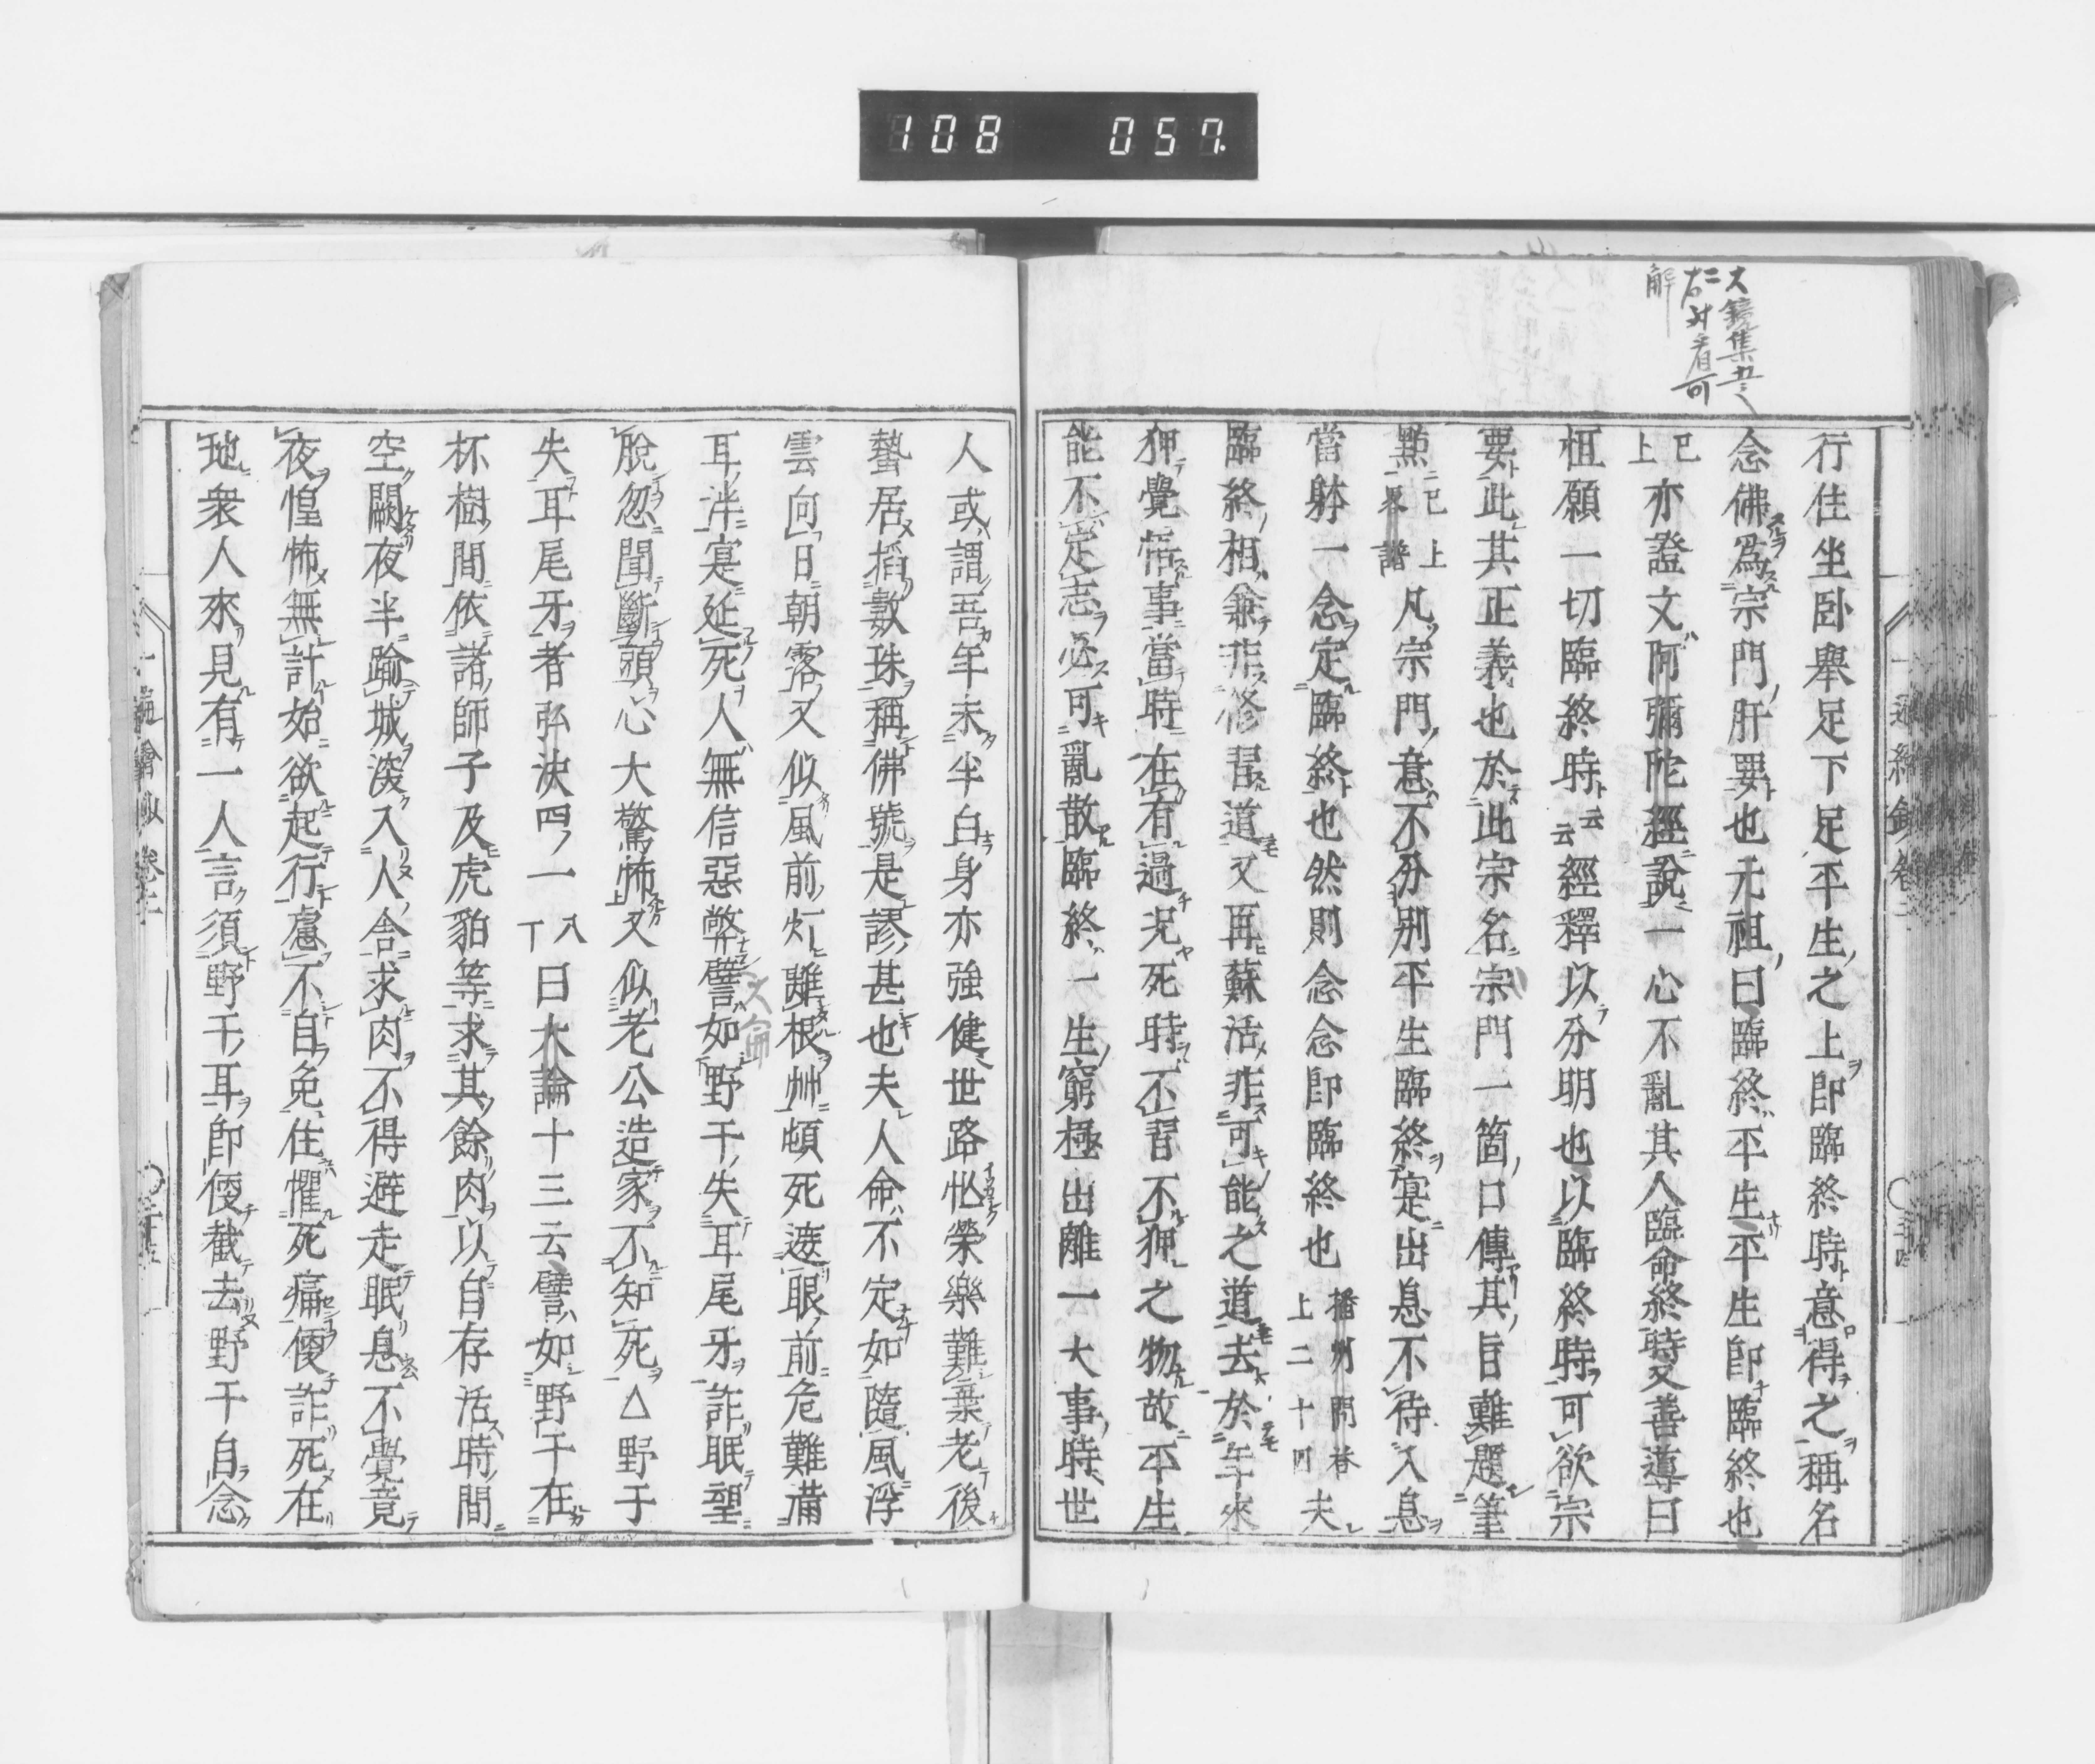 108 057
大鏡集
行住坐卧舉足下足平生之上即臨終時意得之稱名
念佛爲宗門肝要也元祖曰臨終平生平生即臨終也
已上亦證文阿彌陀經說一心不亂其人臨命終時又善導曰
恒願一切臨終時云云經釋以分明也以臨終時可欲宗
要此其正義也於此宗名宗門一箇口傳其旨難選筆
點已上畧譜凡宗門意不分別平生臨終寔出息不待入息
當躰一念定臨終也然則念念即臨終也播州問答上二十可夫
臨終相兼非修習道又再蘇活非可能之道去於年來
狎覺悟事當時在有過況死時不習不狎之物故平生
能不定志必可亂散臨終一生窮極出離一大事時世
人或謂吾年未半白身亦強健世路忙榮樂難棄老後
蟄居搯數珠稱佛號是謬甚也夫人命不定如隨風浮
雲向日朝露又似風前灯離根艸頓死遮眼前危難滿
耳泮寔延死人無信惡弊譬如野干失耳尾牙詐眠望
脫忽聞斷頭心大驚怖又似老公造家不知死△野于
失耳尾牙者弘决四ノ一八丁曰大論十三云譬如野干在
林樹間依諸師子及虎豹等求其餘肉以自存活時間
空闕夜半踰城深入人舍求肉不得避走眠息不覺竟
夜惶怖無計始欲起行慮不自免住懼死痛便詐死在
地衆人來見有一人言須野干耳即便截去野干自念